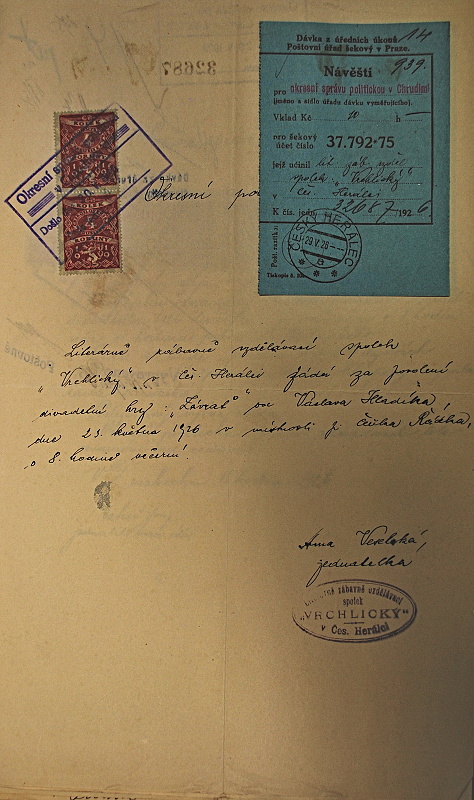 14
Dávka z úředních úkonů
Poštovní úřad šekový v Praze.
Návěští 939.
pro okresní správu politickou v Chrudimi
(jméno a sídlo úřadu dávku vyměřujícího).
Vklad Kč 10 h —
pro šekový
účet číslo 37.792·75
jejž učinil lit. záb. vzděl.
spolek „Vrchlický“
v Čes. Herálci
K čís. jedn. 32687/1926
Pošt. razítko:
ČESKÝ HERALEC
29.V.26
b
Tiskopis š.
32687
KOLEK
KORUNY
5
KOLEK
KORUNY
5
Okresní
Došlo
Okresní po
Literárně zábavně vzdělávací spolek
„Vrchlický“ v Čes. Herálci žádá za povolení
divadelní hry: „Závrať“ od Václava Hladíka,
dne 23. května 1926 v místnosti p. Čeňka Rádka,
o 8. hodině večerní.
Anna Veselská,
jednatelka
zábavně vzdělávací
spolek
„VRCHLICKÝ“
v Čes. Herálci